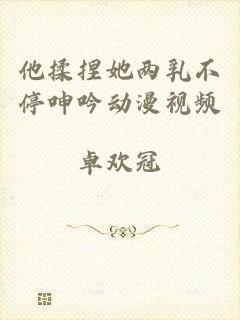 他揉捏她两乳不
停呻吟动漫视频
卓欢冠